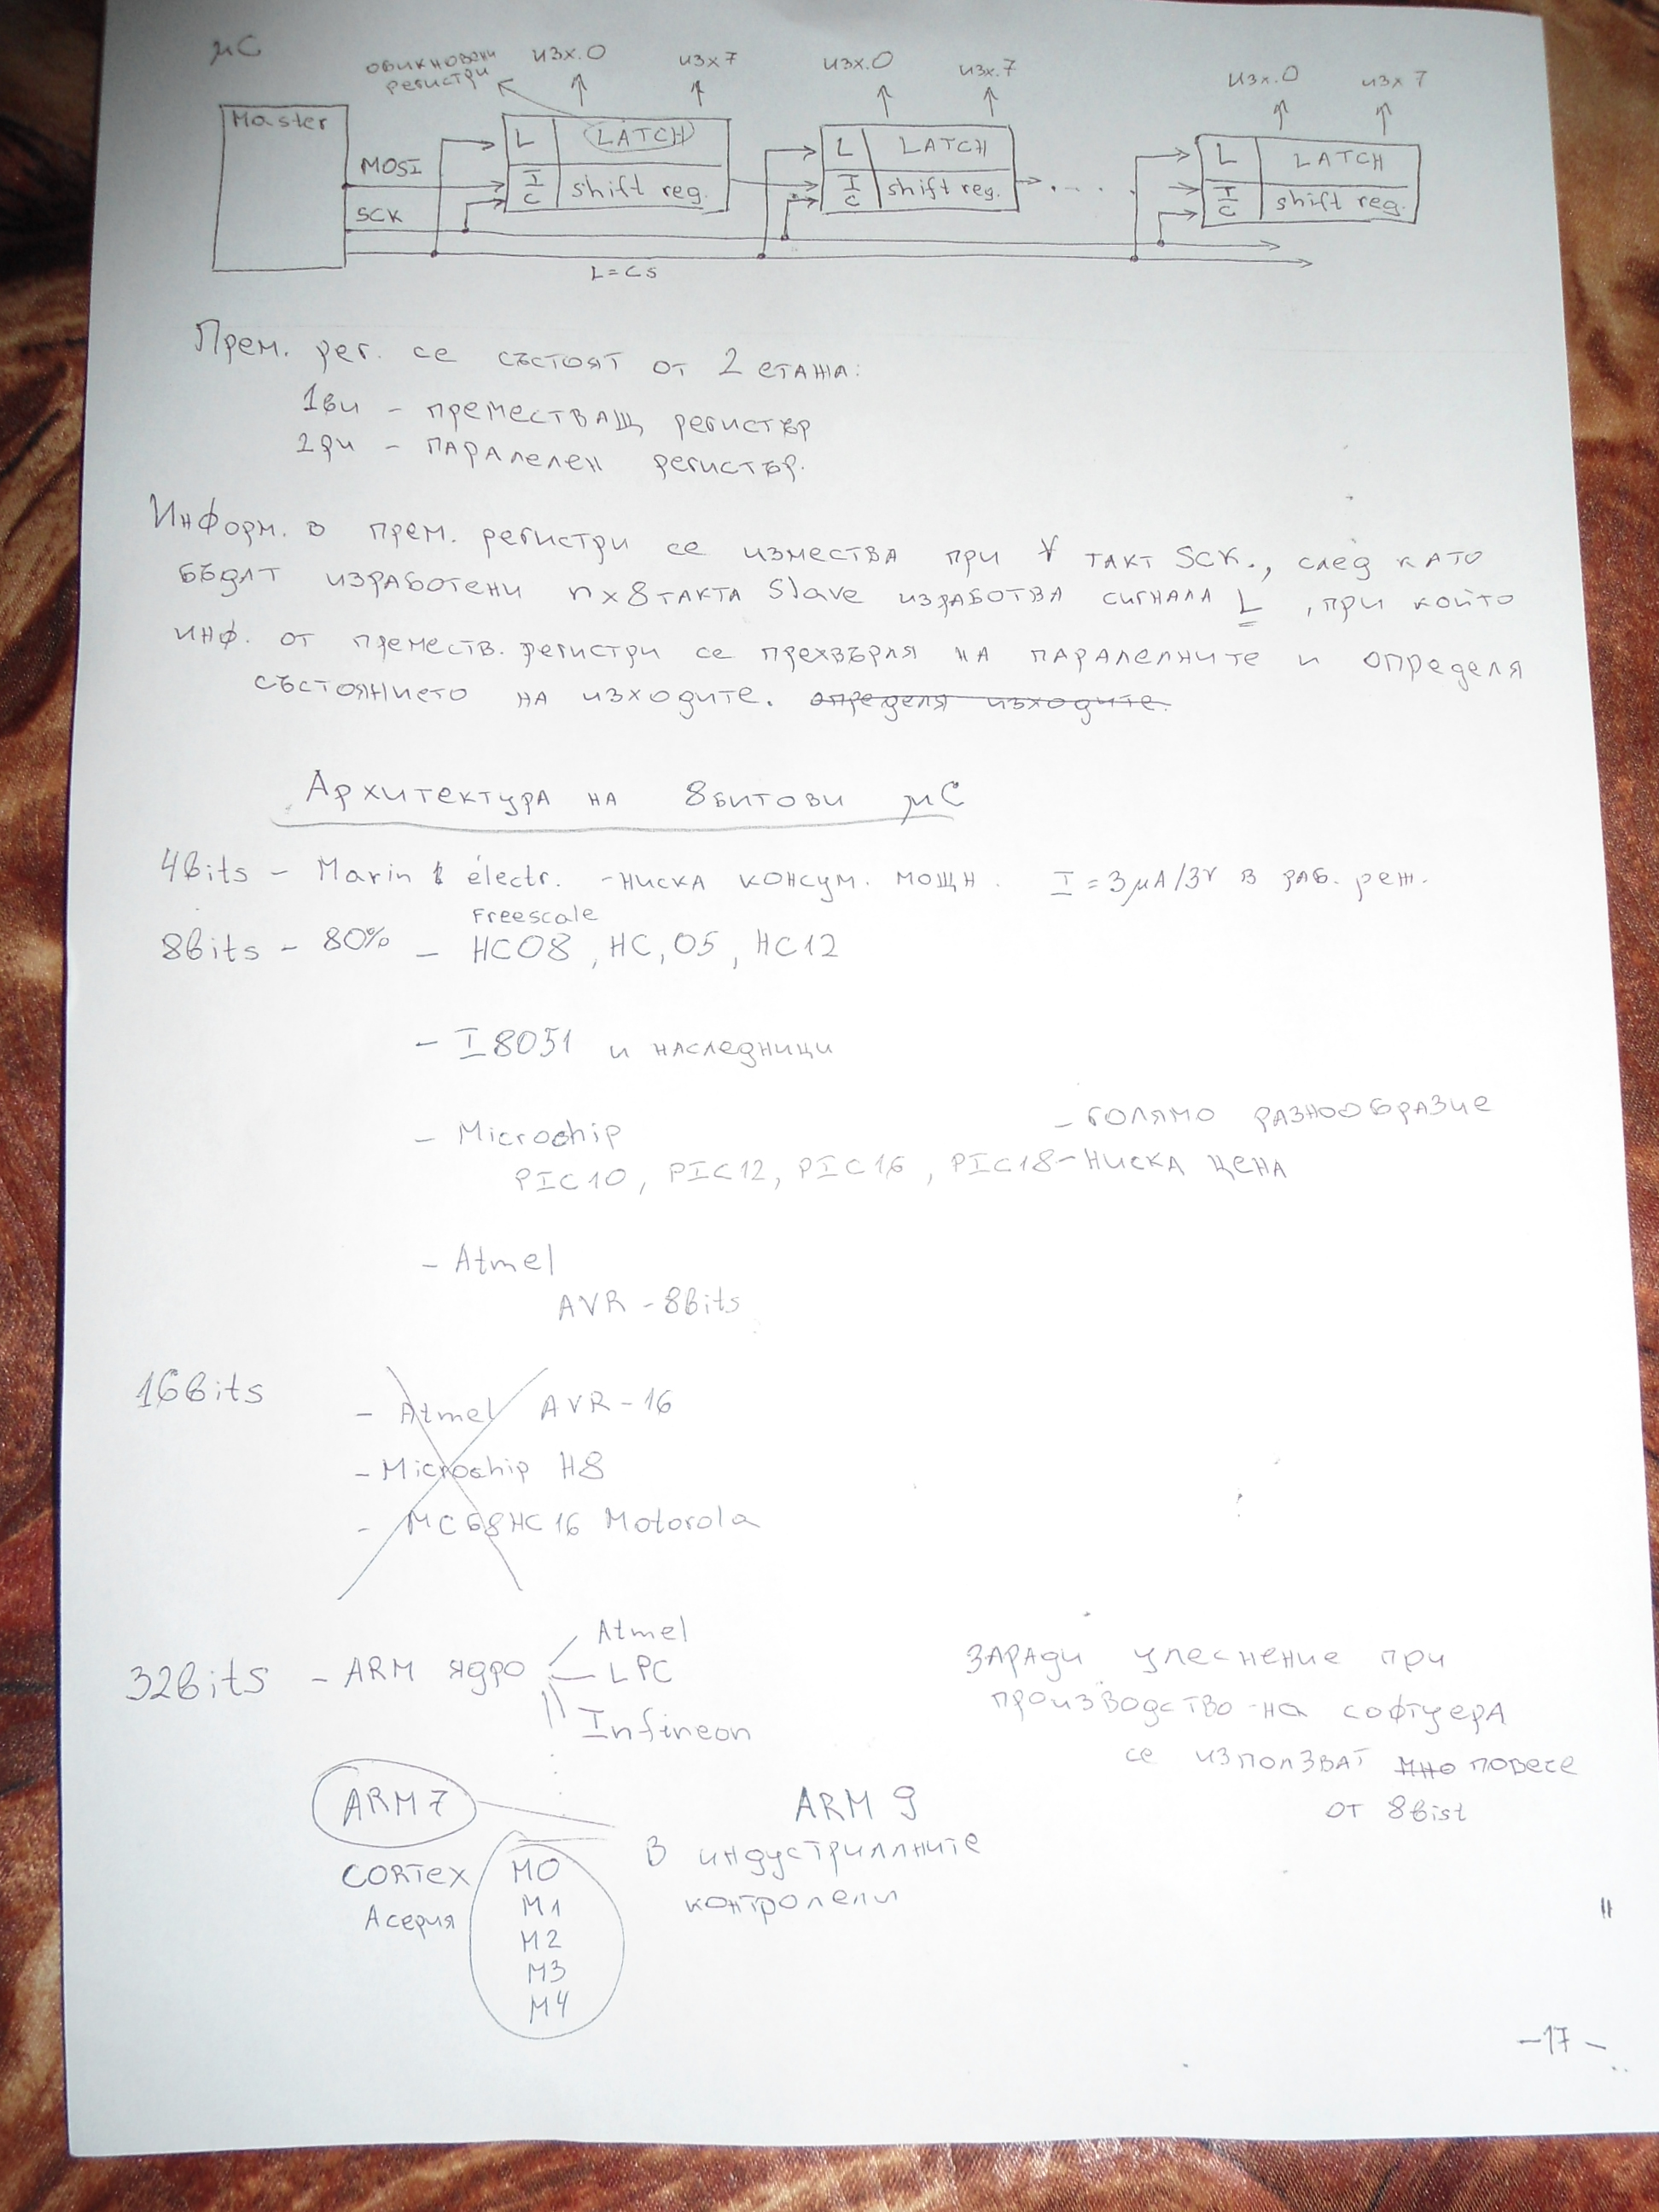 μC
обикновени
регистри
изх.0
изх7
изх.0
изх.7
изх.0
изх 7
Master
MOSI
SCK
L LATCH
I
C shift reg.
L LATCH
I
C shift reg.
....
L LATCH
I
C shift reg.
L=CS
Прем. рег. се състоят от 2 етажа:
1ви - преместващ регистър
2ри - паралелен регистър.
Информ. в прем. регистри се измества при ∀ такт SCK., след като
бъдат изработени n×8 такта Slave изработва сигнала L, при който
инф. от преместв. регистри се прехвърля на паралелните и определя
състоянието на изходите. определя изходите.
Архитектура на 8битови μC
4bits - Marin électr. - ниска консум. мощн. I=3μA/3V в раб. реж.
Freescale
8bits - 80% - HC08, HC,05, HC12
- I8051 и наследници
- Microchip - голямо разнообразие
PIC10, PIC12, PIC16, PIC18 - ниска цена
- Atmel
AVR - 8bits
16bits
- Atmel AVR-16
- Microchip H8
- MC68HC16 Motorola
32bits - ARM ядро
Atmel
LPC
Infineon
заради улеснение при
производство на софтуера
се използват мно повече
от 8bist
ARM7
ARM 9
в индустриалните
контролели
CORTEX
А серия
M0
M1
M2
M3
M4
-17-